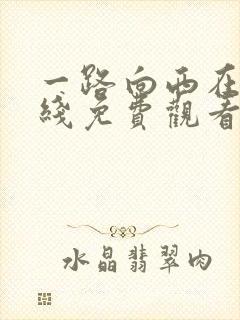 一路向西在
綫免費觀看
水晶翡翠肉